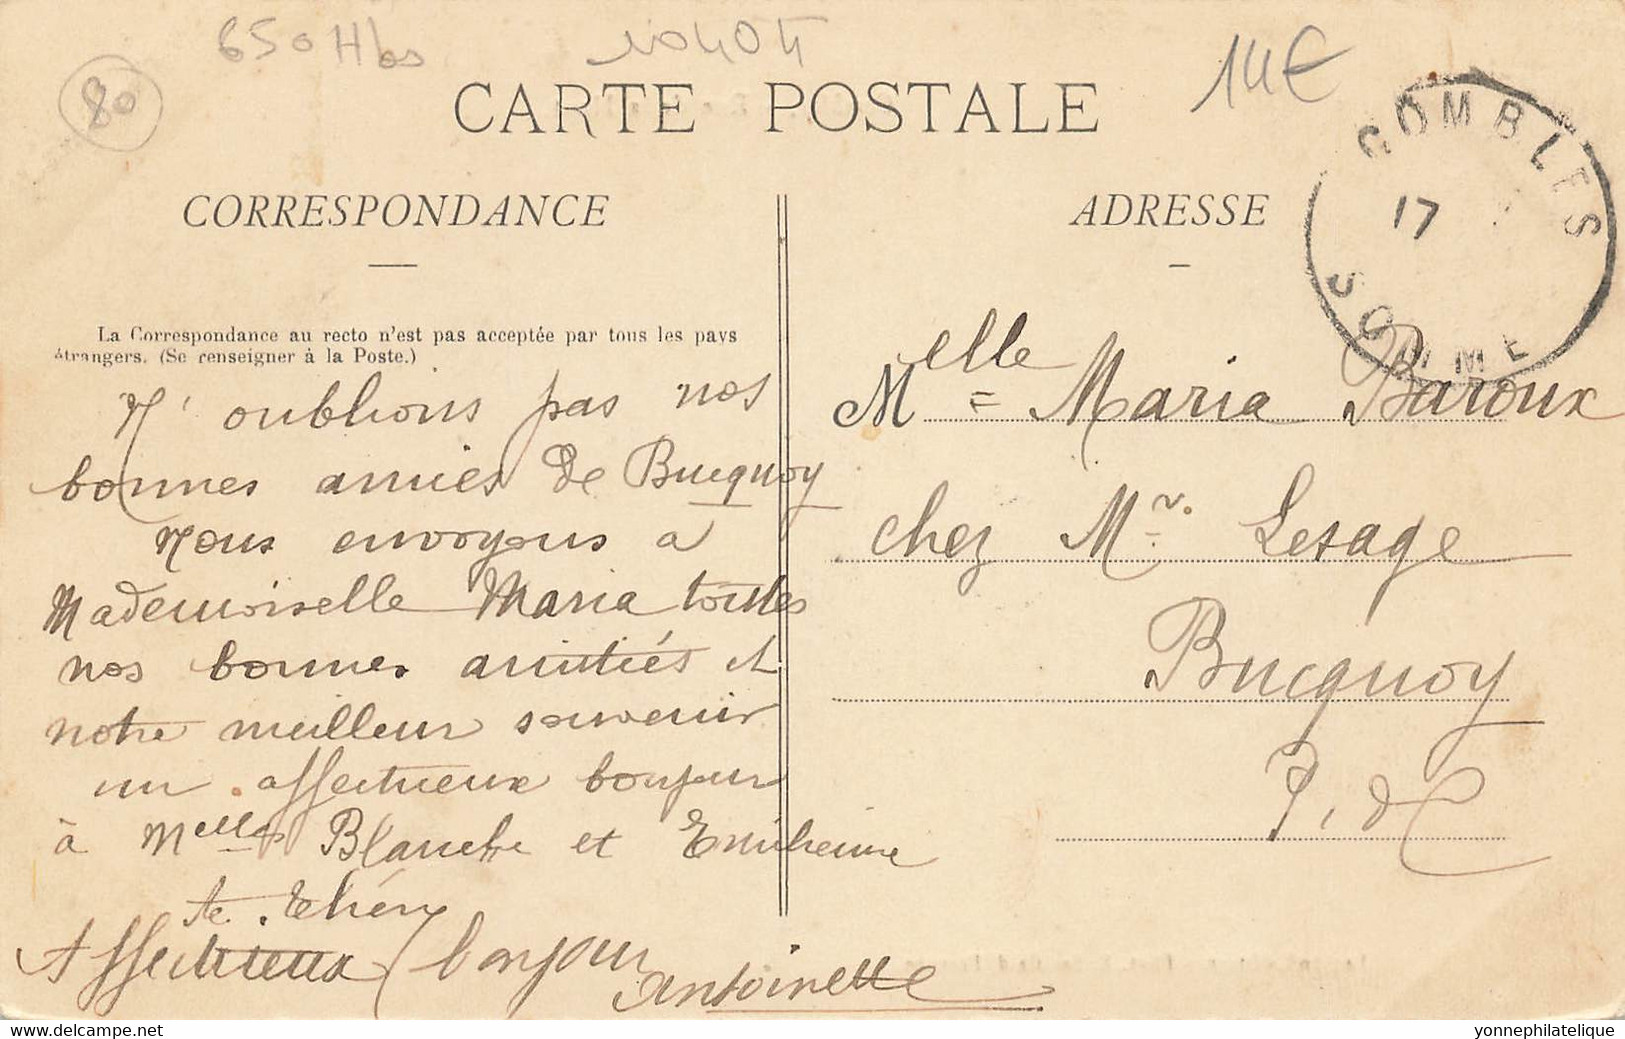 650 Hbs
10404
14€
80
CARTE POSTALE
COMBLES
17
SOMME
CORRESPONDANCE
ADRESSE
La Correspondance au recto n'est pas acceptée par tous les pays
étrangers. (Se renseigner à la Poste.)
N'oublions pas nos
bonnes amies de Bucquoy
Nous envoyons a
Mademoiselle Maria toutes
nos bonnes amitiés et
notre meilleur souvenir
un affectueux bonjour
à Melles Blanche et Emilienne
Affectueux bonjour
Antoinette
Melle Maria Baroux
chez Mr. Lesage
Bucquoy
P. d C
yonnephilatelique